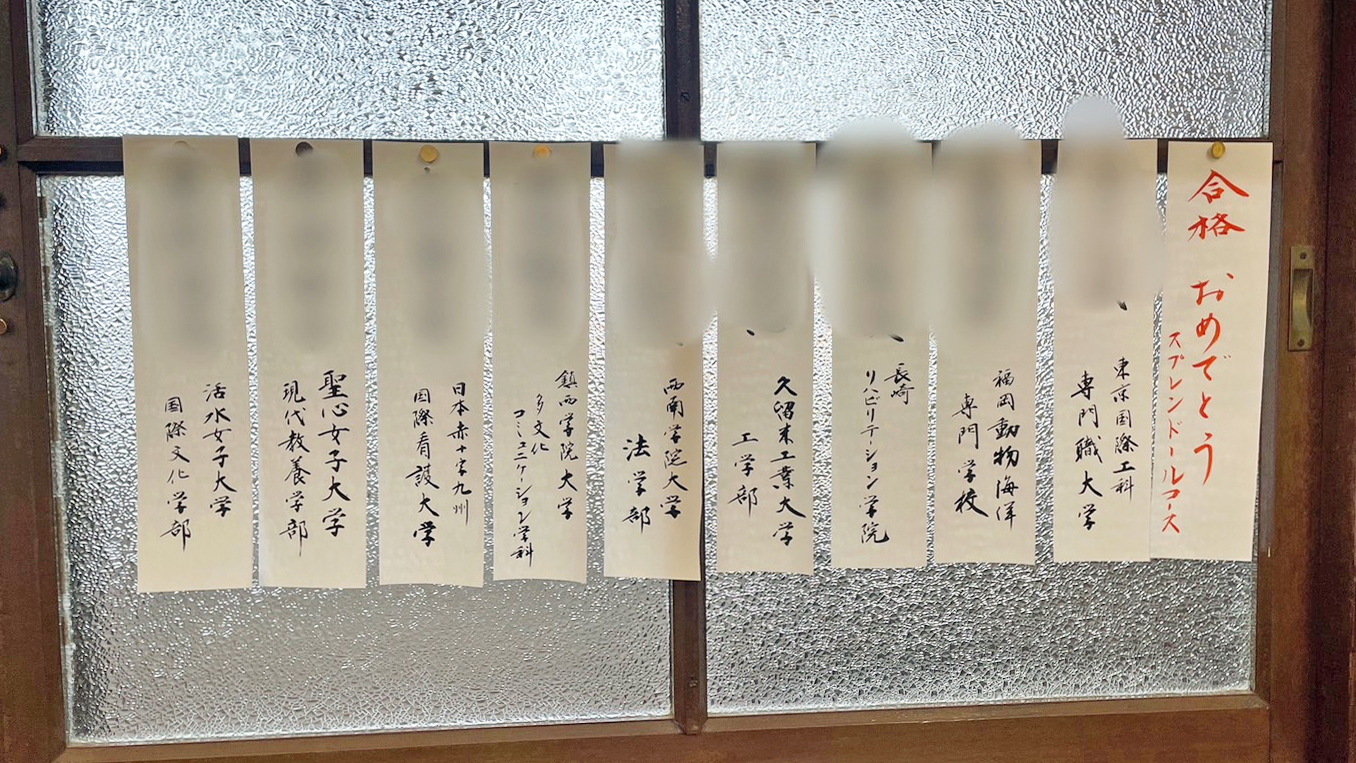 合格 おめでとう
スプレンドールコース
東京国際工科
専門職大学
福岡動物海洋
専門学校
長崎
リハビリテーション学院
久留米工業大学
工学部
西南学院大学
法学部
鎮西学院大学
多文化
コミュニケーション学科
日本赤十字九州
国際看護大学
聖心女子大学
現代教養学部
活水女子大学
国際文化学部